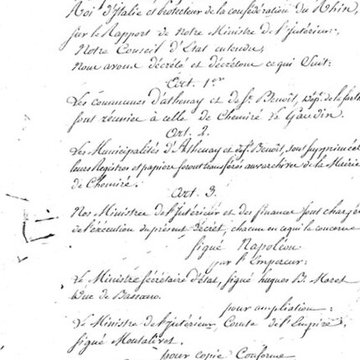 Roi d'Italie et Protecteur de la confédération du Rhin,
sur le Rapport de Notre Ministre de l'Intérieur;
Notre Conseil d'Etat entendu,
Nous avons décrété et décrétons ce qui Suit:
Art. 1er
Les communes d'athenay et de St. Benoit, Dép. de la Sarthe
sont réunies à celle de Chemiré Le Gaudin
Art. 2.
Les Municipalités d'Athenay et de St. Benoit, sont supprimées
leurs Registres et papiers seront transférés aux archives de la Mairie
de Chemiré.
Art. 3.
Nos Ministres de l'Intérieur et des finances sont chargés
de l'exécution du présent Décret, chacun en ce qui le concerne
signé Napoléon
par l'Empereur:
Le Ministre Secrétaire d'état, signé hugues B. Maret
Duc de Bassano.
pour ampliation:
Le Ministre de l'intérieur, Comte de l'Empire,
signé Montalivet
pour copie Conforme